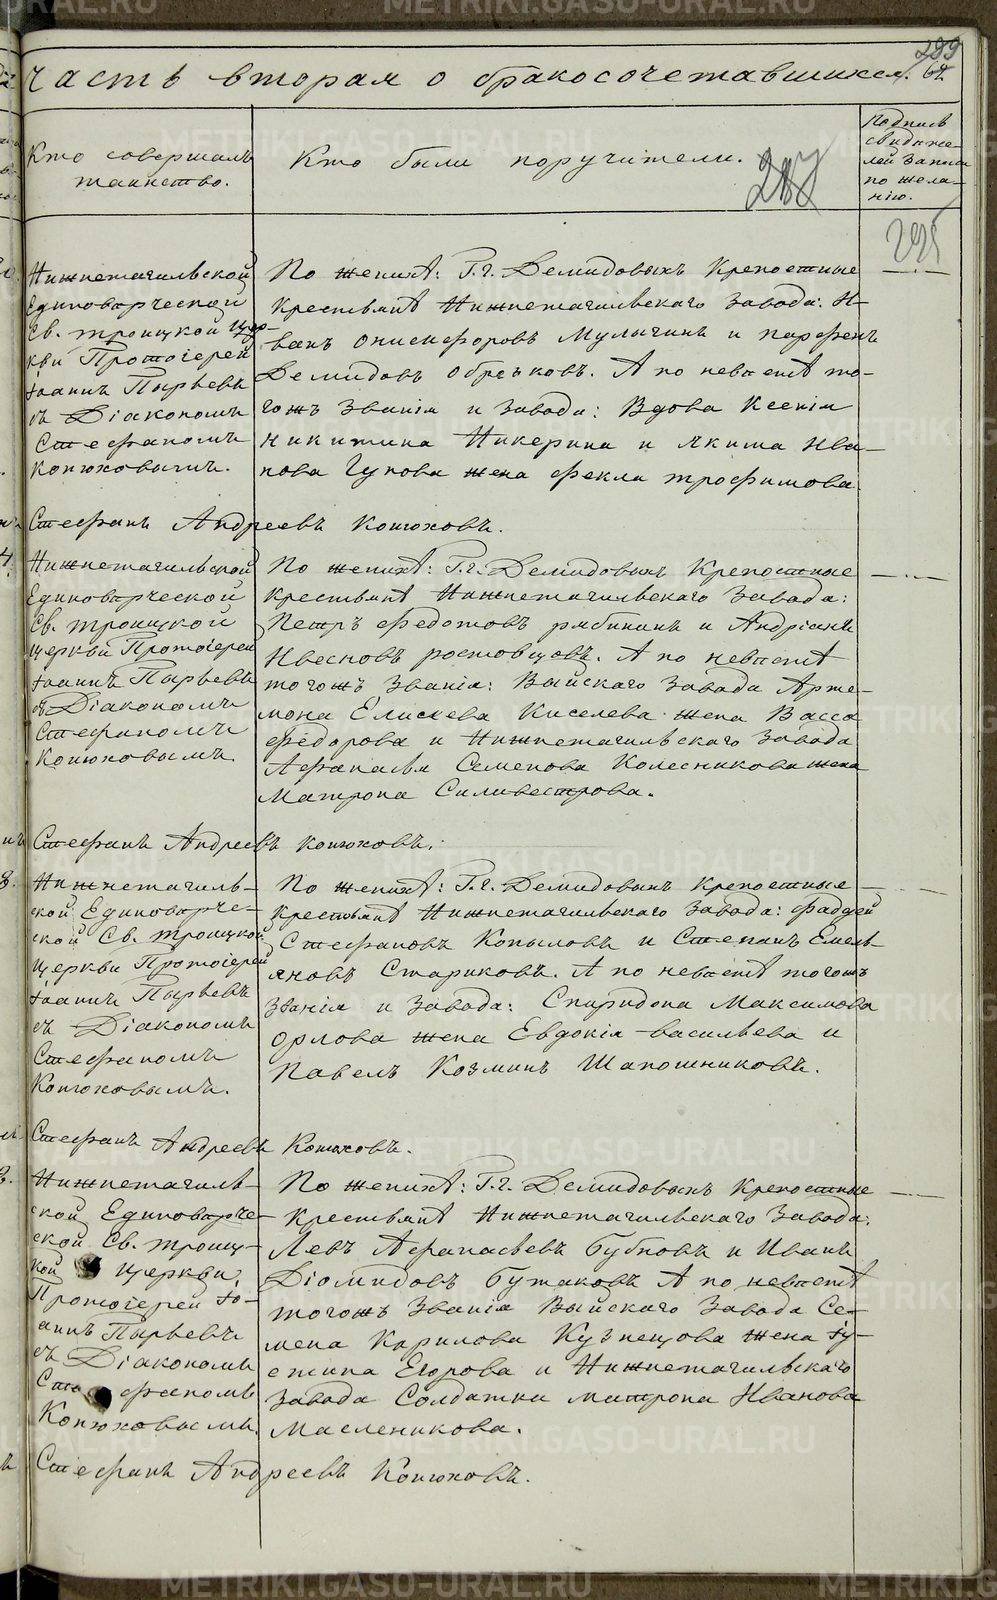 METRIKI.GASO-URAL.RU
289
64.
Часть вторая о бракосочетавшихся.
Кто совершалъ
таинство.
Кто были поручители.
287
Подпись
свидѣте-
лей записи
по жела-
нію.
295
Нижнетагильской
Единовѣрческой
Св. Троицкой Цер-
кви Протоіерей
Іоаннъ Пырьевъ
съ Діакономъ
Стефаномъ
Конюховымъ.
По женихѣ: Г.г. Демидовыхъ Крепостные
крестьянѣ Нижнетагильскаго завода: И-
ванъ Онисифоровъ Мулычинъ и Парфенъ
Демидовъ Обрѣзковъ. А по невѣстѣ то-
гожъ званія и завода: Вдова Ксенія
Никитина и Якима Ива-
нова Гунова жена Фекла Трофимова.
Стефанъ Андреевъ Конюховъ.
Нижнетагильской
Единоварческой
Св. Троицкой
церкви Протоіерей
Іоаннъ Пырьевъ
съ Діакономъ
Стефаномъ
Конюховымъ.
По женихѣ: Г.г. Демидовыхъ Крепостные
крестьянѣ Нижнетагильскаго завода:
Петръ Федотовъ Рябининъ и Андріанъ
Ростовцовъ. А по невѣстѣ
тогожъ званія: Выйскаго завода Арте-
мона Елисѣева Киселева жена Васса
Федорова и Нижнетагильскаго завода
Афанасья Семенова Колесникова жена
Матрона Силивестрова.
Стефанъ Андреевъ Конюховъ.
Нижнетагиль-
ской Единоварче-
ской Св. Троицкой
Церкви Протоіерей
Іоаннъ Пырьевъ
съ Діакономъ
Стефаномъ
Конюховымъ.
По женихѣ: Г.г. Демидовыхъ Крепостные
крестьянѣ Нижнетагильскаго завода: Фаддей
Стефановъ Копыловъ и Степанъ Емель-
яновъ Стариковъ. А по невѣстѣ тогожъ
званія и завода: Спиридона Максимова
Орлова жена Евдокія Васильева и
Павелъ Козминъ Шапошниковъ.
Стефанъ Андреевъ Конюховъ.
Нижнетагиль-
ской Единоварче-
ской Св. Троиц-
кой Церкви,
Протоіерей Іо-
аннъ Пырьевъ
съ Діакономъ
Стефаномъ
Конюховымъ.
По женихѣ: Г.г. Демидовыхъ Крепостные
крестьянѣ Нижнетагильскаго завода:
Левъ Афанасьевъ Бубновъ и Иванъ
Діомидовъ Бутаковъ А по невѣстѣ
тогожъ званія Выйскаго завода Се-
мена Карилова Кузнецова жена Іу-
стина Егорова и Нижнетагильскаго
завода Солдатка Матрона Иванова
Масленикова.
Стефанъ Андреевъ Конюховъ.